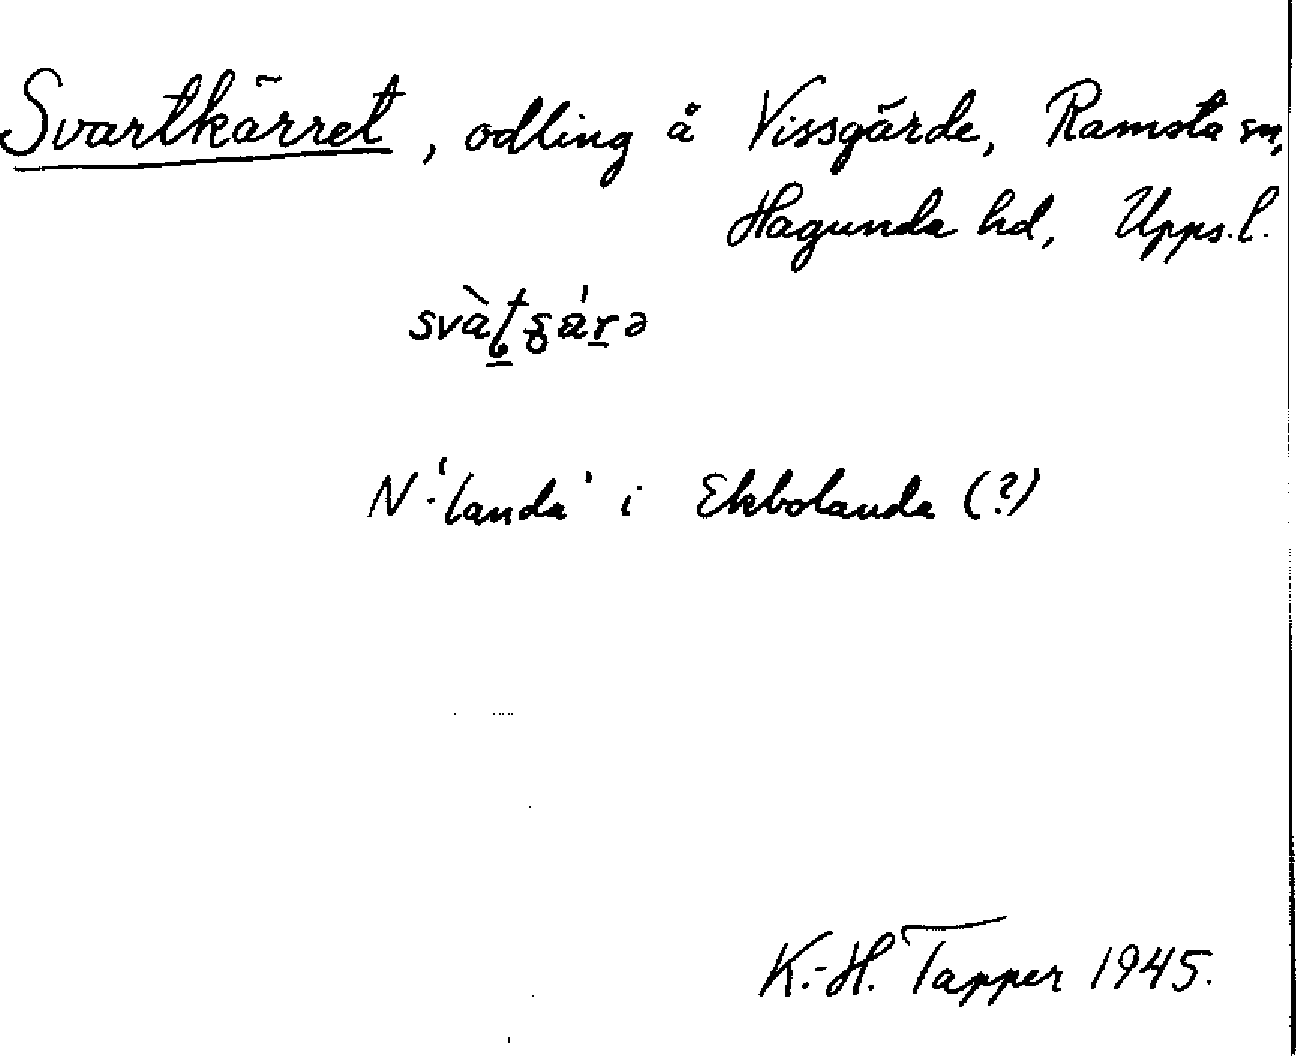 Svartkärret, odling å Vissgärde, Ramsta sn,
Hagunda hd, Upps. l.
N. 'landa' i Ekbolanda (?)
K.-H. Tapper 1945.